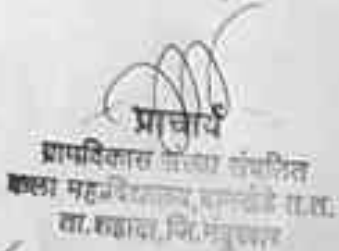 प्राचार्य
ग्रामविकास संस्था संचलित
कला महाविद्यालय, त.त.
ता.शहादा, जि.नंदुरबार